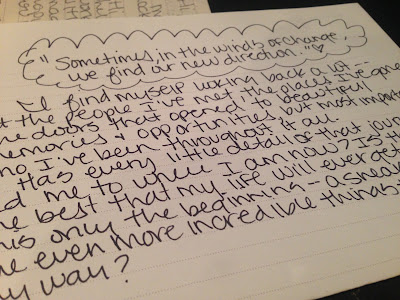 "Sometimes, in the winds of change,
we find our new direction." ♡
I find myself looking back a lot --
at the people I've met, the places I've gone
the doors that opened to beautiful
memories & opportunities, but most import
who I've been throughout it all.
Has every little detail of that jour
led me to where I am now? Is th
he best that my life will ever get
his only the beginning -- a sneak
he even more incredible things
my way?